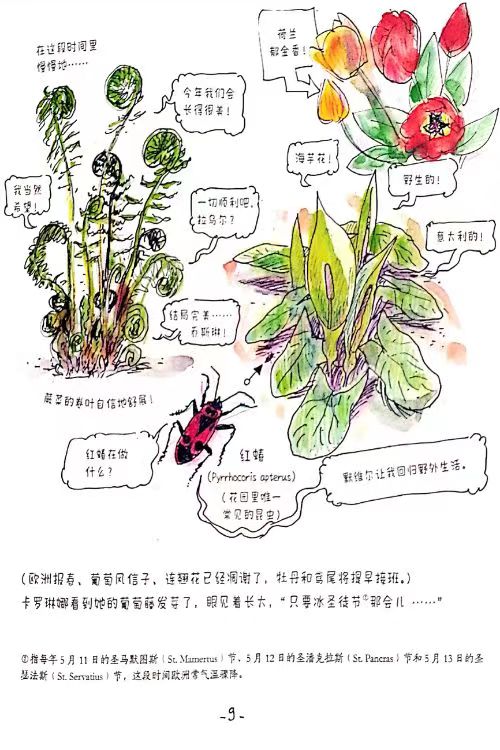 在这段时间里
慢慢地……
今年我们会
长得很美！
荷兰
郁金香！
海芋花！
野生的！
意大利的！
我当然
希望！
一切顺利吧，
拉乌尔？
结局完美……
苏斯琳！
蕨菜的卷叶自信地舒展！
红蝽在做
什么？
红蝽
(Pyrrhocoris apterus)
(花园里唯一
常见的昆虫)
默维尔让我回归野外生活。
(欧洲报春、葡萄风信子、连翘花已经凋谢了，牡丹和鸢尾将提早接班。)
卡罗琳娜看到她的葡萄藤发芽了，眼见着长大，“只要冰圣徒节①那会儿……”
①指每年5月11日的圣马默图斯（St. Mamertus）节、5月12日的圣潘克拉斯（St. Pancras）节和5月13日的圣
瑟法斯（St. Servatius）节，这段时间欧洲常气温骤降。
-9-